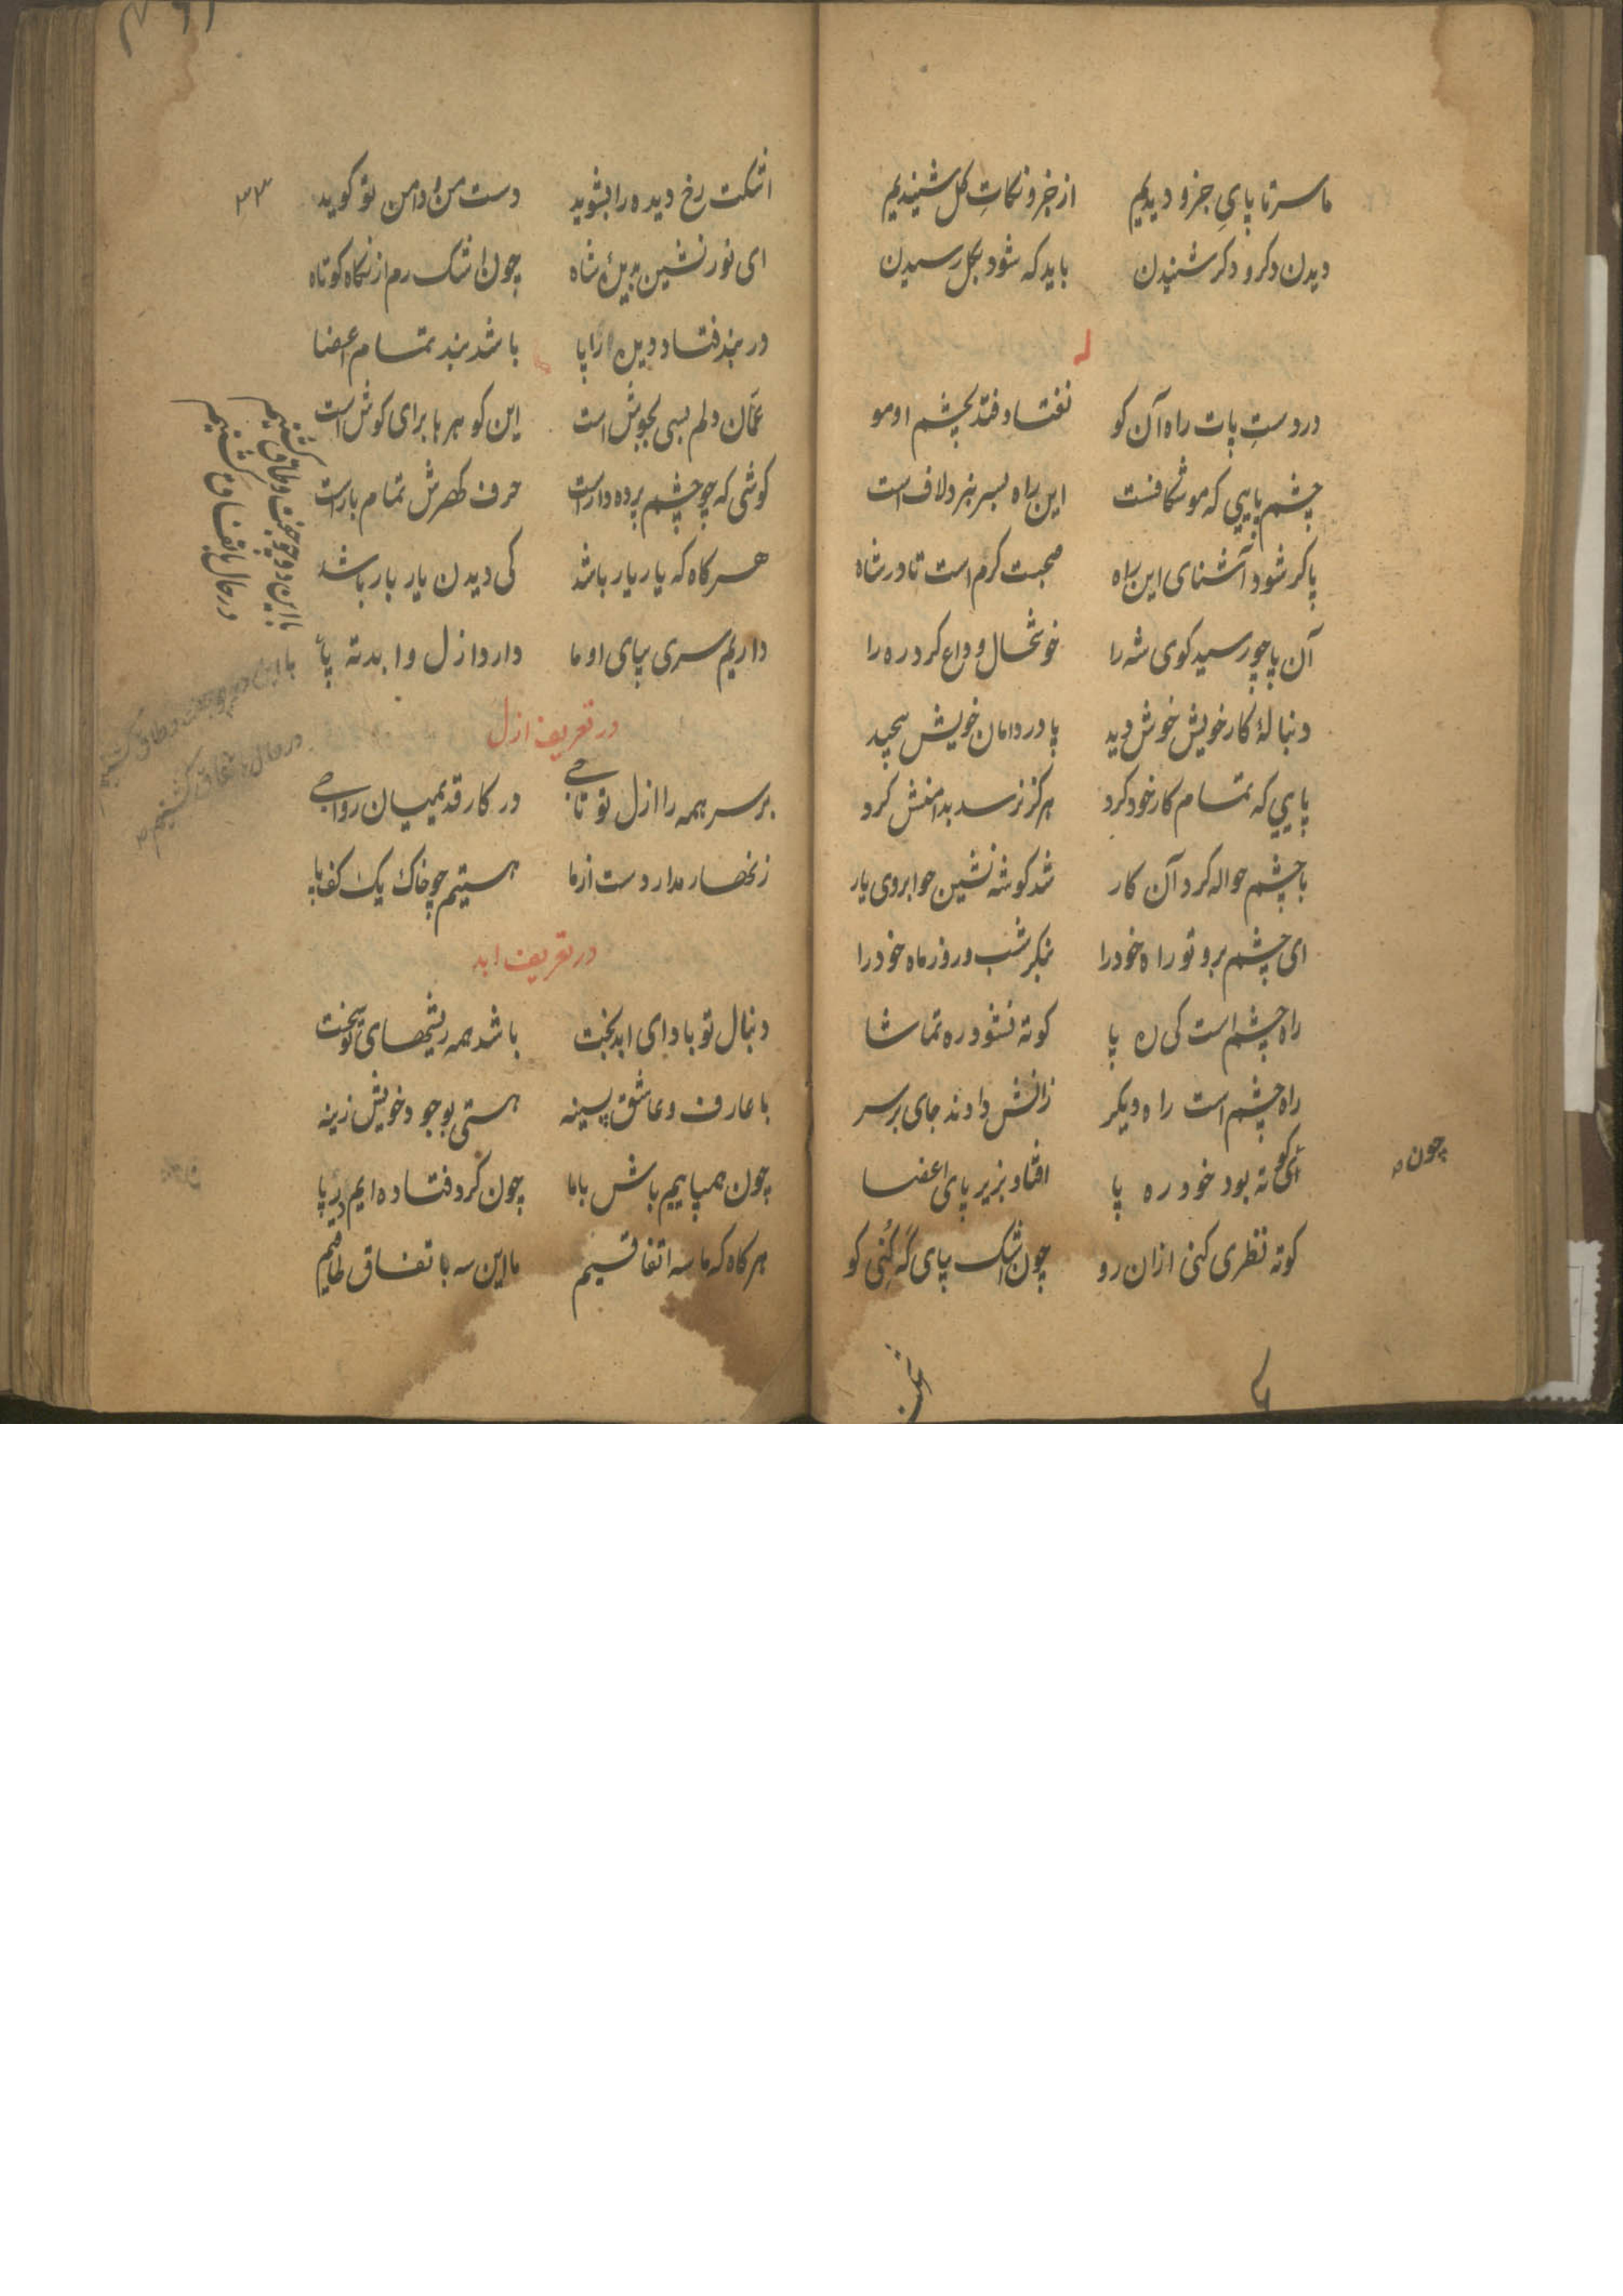 ما سر تا پایِ جزو دیدیم از جزو نکاتِ کل شنیدیم
دیدن دکر و دکر شنیدن باید که شود بکل رسیدن
در دستِ پات راه آن کو نفتاد فتد بچشم او مو
چشم پایی که موشکافست این راه بسر بَرَد لاف است
پا کر شود آشنای این راه صحبت کرم است تا در شاه
آن پا چو رسید کوی شه را خوشحال وداع کرد ره را
دنبالهٔ کار خویش خوش دید پا در دامان خویش پیچید
پایی که تمام کار خود کرد هرکز نرسد بدامنش کرد
با چشم حواله کرد آن کار شد کوشه نشین چو ابروی یار
ای چشم برو تو راه خود را بنکر شب و روز ماه خود را
راه چشم است کی ره پا کوته نشود ره تماشا
راه چشم است راه دیکر زانش دادند جای بر سر
کی کوته بود خود ره پا افتاد بزیر پای اعضا
چون
کوته نظری کنی ازان رو چون اشک بپای که کُنی کو
۳۳
اشکت رخ دیده را بشوید دست من و دامن تو کوید
ای نور نشین بدیدهٔ شاه چون اشک رم از نکاه کوتاه
در بند فتاد دیده از پا باشد بند تمام اعضا
عمّان دلم بسی بجوش است این کوهرها برای کوش است
کوشی که چو چشم پرده دار است حرف کهرش تمام بار است
هرکاه که یار یار باشد کی دیدن یار بار باشد
داریم سری بپای او ما دارد ازل و ابد ته پا
در تعریف ازل
بر سر همه را ازل تو تاجی در کار قدیمیان رواجی
زنهار مدار دست از ما هستیم چو خاک یک کف پا
در تعریف ابد
دنبال تو باد ای ابد بخت باشد همه ریشهای تو سخت
با عارف و عاشق پسینه هستی بوجود خویش زینه
چون همپاییم باش با ما چون کرد فتاده ایم در پا
هرکاه که ما سه اتفاقیم ما این سه باتفاق طاقیم
با این دو چو جفت و طاق کشتیم
در حال باتفاق کشتیم
با این دو چو جفت و طاق کشتیم
در حال باتفاق کشتیم